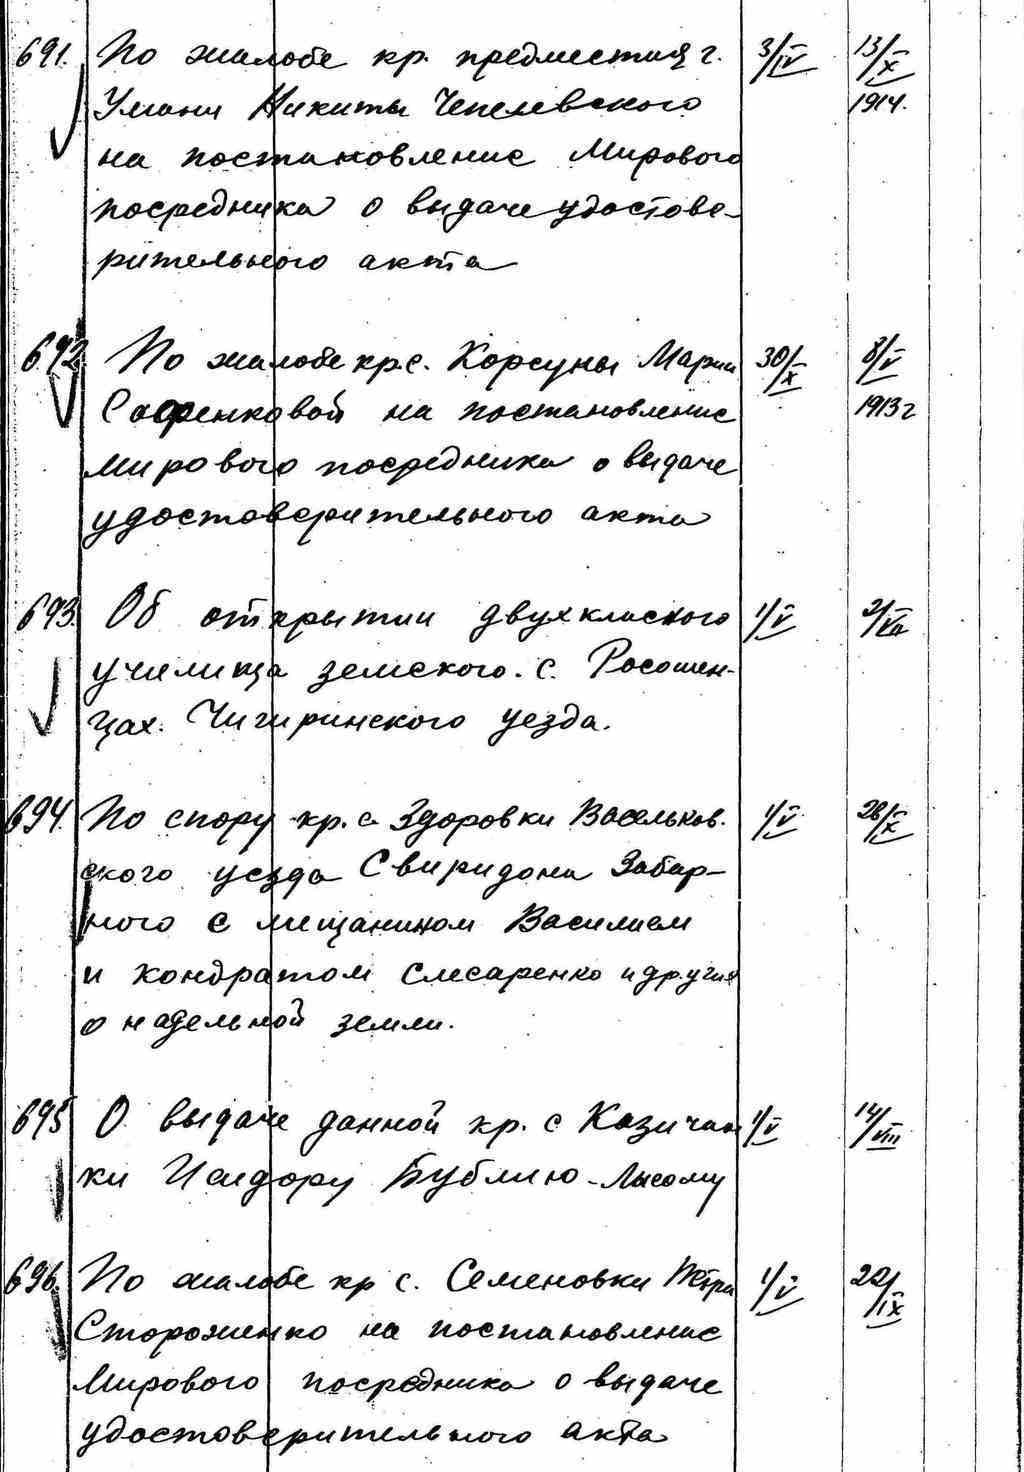 691. По жалобе кр. предместия г. 3/IV 13/X
Умани Никиты Чепелевского 1914.
на постановление Мирового
посредника о выдаче удостове-
рительного акта
692 По жалобе кр. с. Корсуны Марии 30/X 8/V
Софренковой на постановление 1913 г
мирового посредника о выдаче
удостоверительного акта
693. Об открытии двухкласного 1/V 2/VII
училища земского. с. Росошен-
цах. Чигиринского уезда.
694. По спору кр. с Здоровки Васильков. 1/V 28/X
ского уезда Свиридона Забар-
ного с мещанином Василием
и Кондратом Слесаренко и другия
о надельной земли.
695 О выдаче данной кр. с Казичан 1/V 14/VIII
ки Исидору Бублию-Лысому
696. По жалобе кр с. Семеновки Петра 1/V 22/IX
Стороженко на постановление
Мирового посредника о выдаче
удостоверительного акта